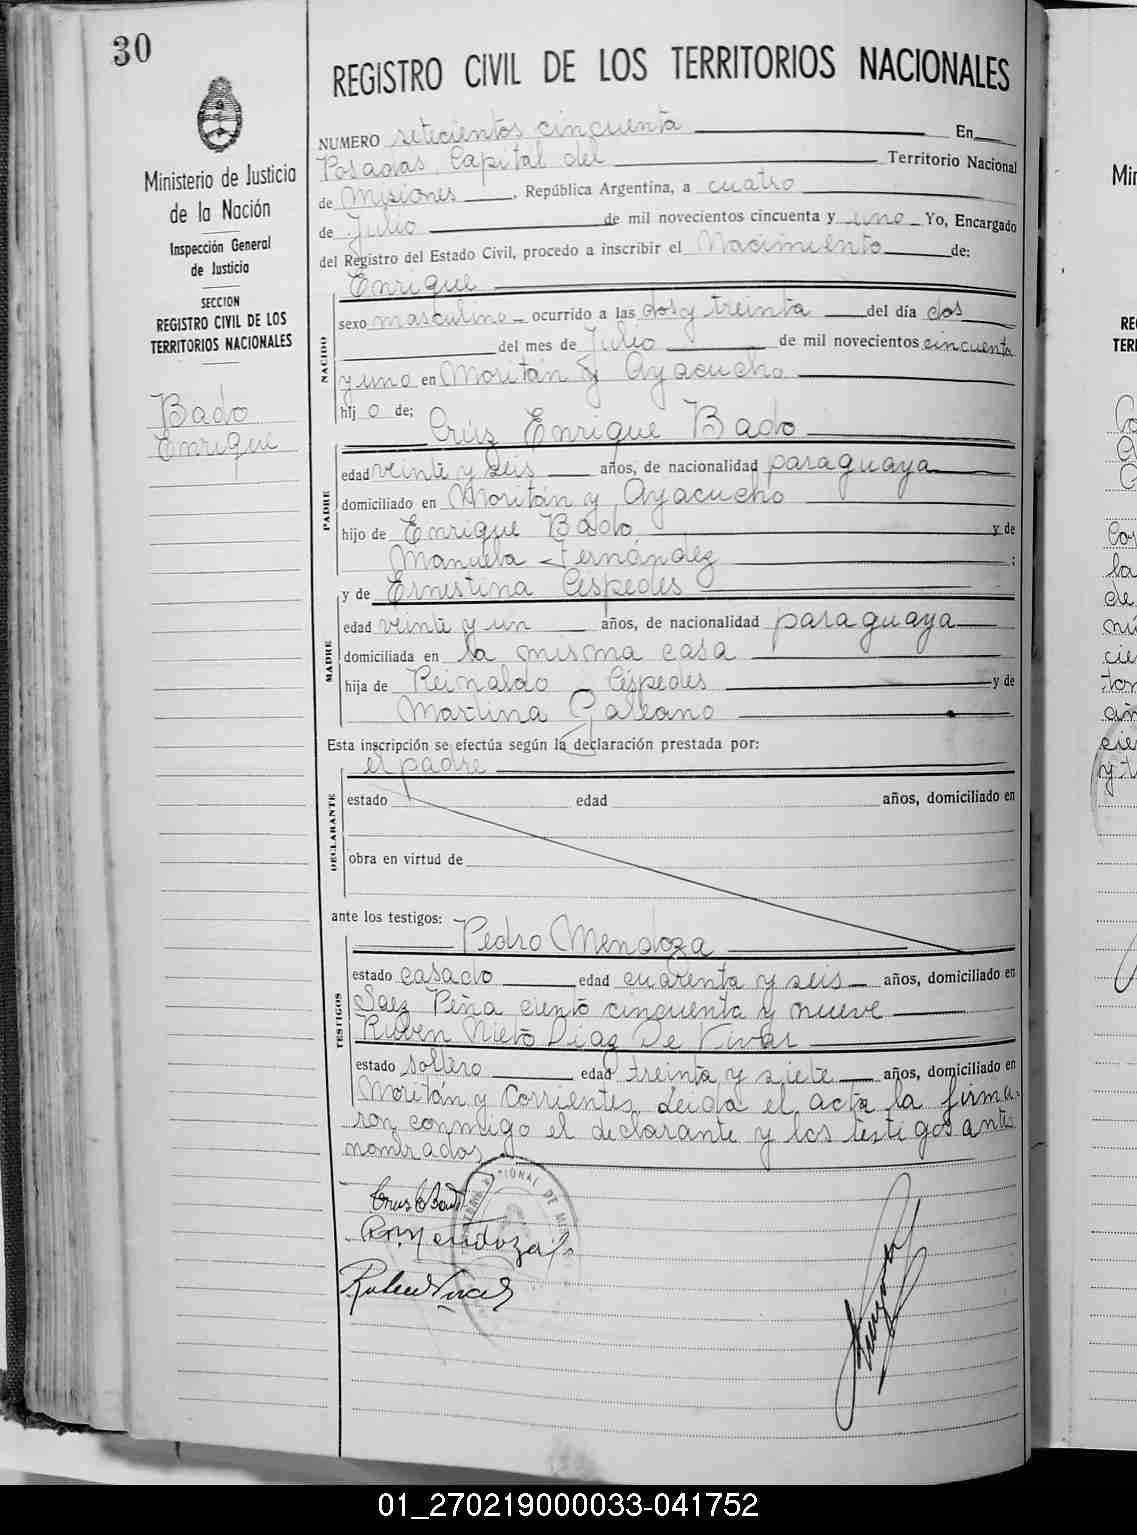 30
Ministerio de Justicia
de la Nación
Inspección General
de Justicia
SECCION
REGISTRO CIVIL DE LOS
TERRITORIOS NACIONALES
Bado
Enrique
REGISTRO CIVIL DE LOS TERRITORIOS NACIONALES
NUMERO setecientos cincuenta En
Posadas, Capital del Territorio Nacional
de Misiones, República Argentina, a cuatro
de Julio de mil novecientos cincuenta y uno Yo, Encargado
del Registro del Estado Civil, procedo a inscribir el Nacimiento de:
Enrique
NACIDO
sexo masculino ocurrido a las dos y treinta del día dos
del mes de Julio de mil novecientos cincuenta
y uno en Moritán y Ayacucho
hijo de:
Crúz Enrique Bado
PADRE
edad veinte y seis años, de nacionalidad paraguaya
domiciliado en Moritán y Ayacucho
hijo de Enrique Bado y de
Manuela Fernández ;
y de Ernestina Céspedes
MADRE
edad veinte y un años, de nacionalidad paraguaya
domiciliada en la misma casa
hija de Reinaldo Céspedes y de
Martina Galeano
Esta inscripción se efectúa según la declaración prestada por:
el padre
DECLARANTE
estado edad años, domiciliado en
obra en virtud de
ante los testigos:
Pedro Mendoza
TESTIGOS
estado casado edad cuarenta y seis años, domiciliado en
Saez Peña ciento cincuenta y nueve
Rúben Nieto Diaz De Vivar
estado soltero edad treinta y siete años, domiciliado en
Moritán y Corrientes, Leida el acta la firma-
ron conmigo el declarante y los testigos antes
nombrados
Cruz E Bado
P. Mendoza
Ruben Vivar
01_270219000033-041752